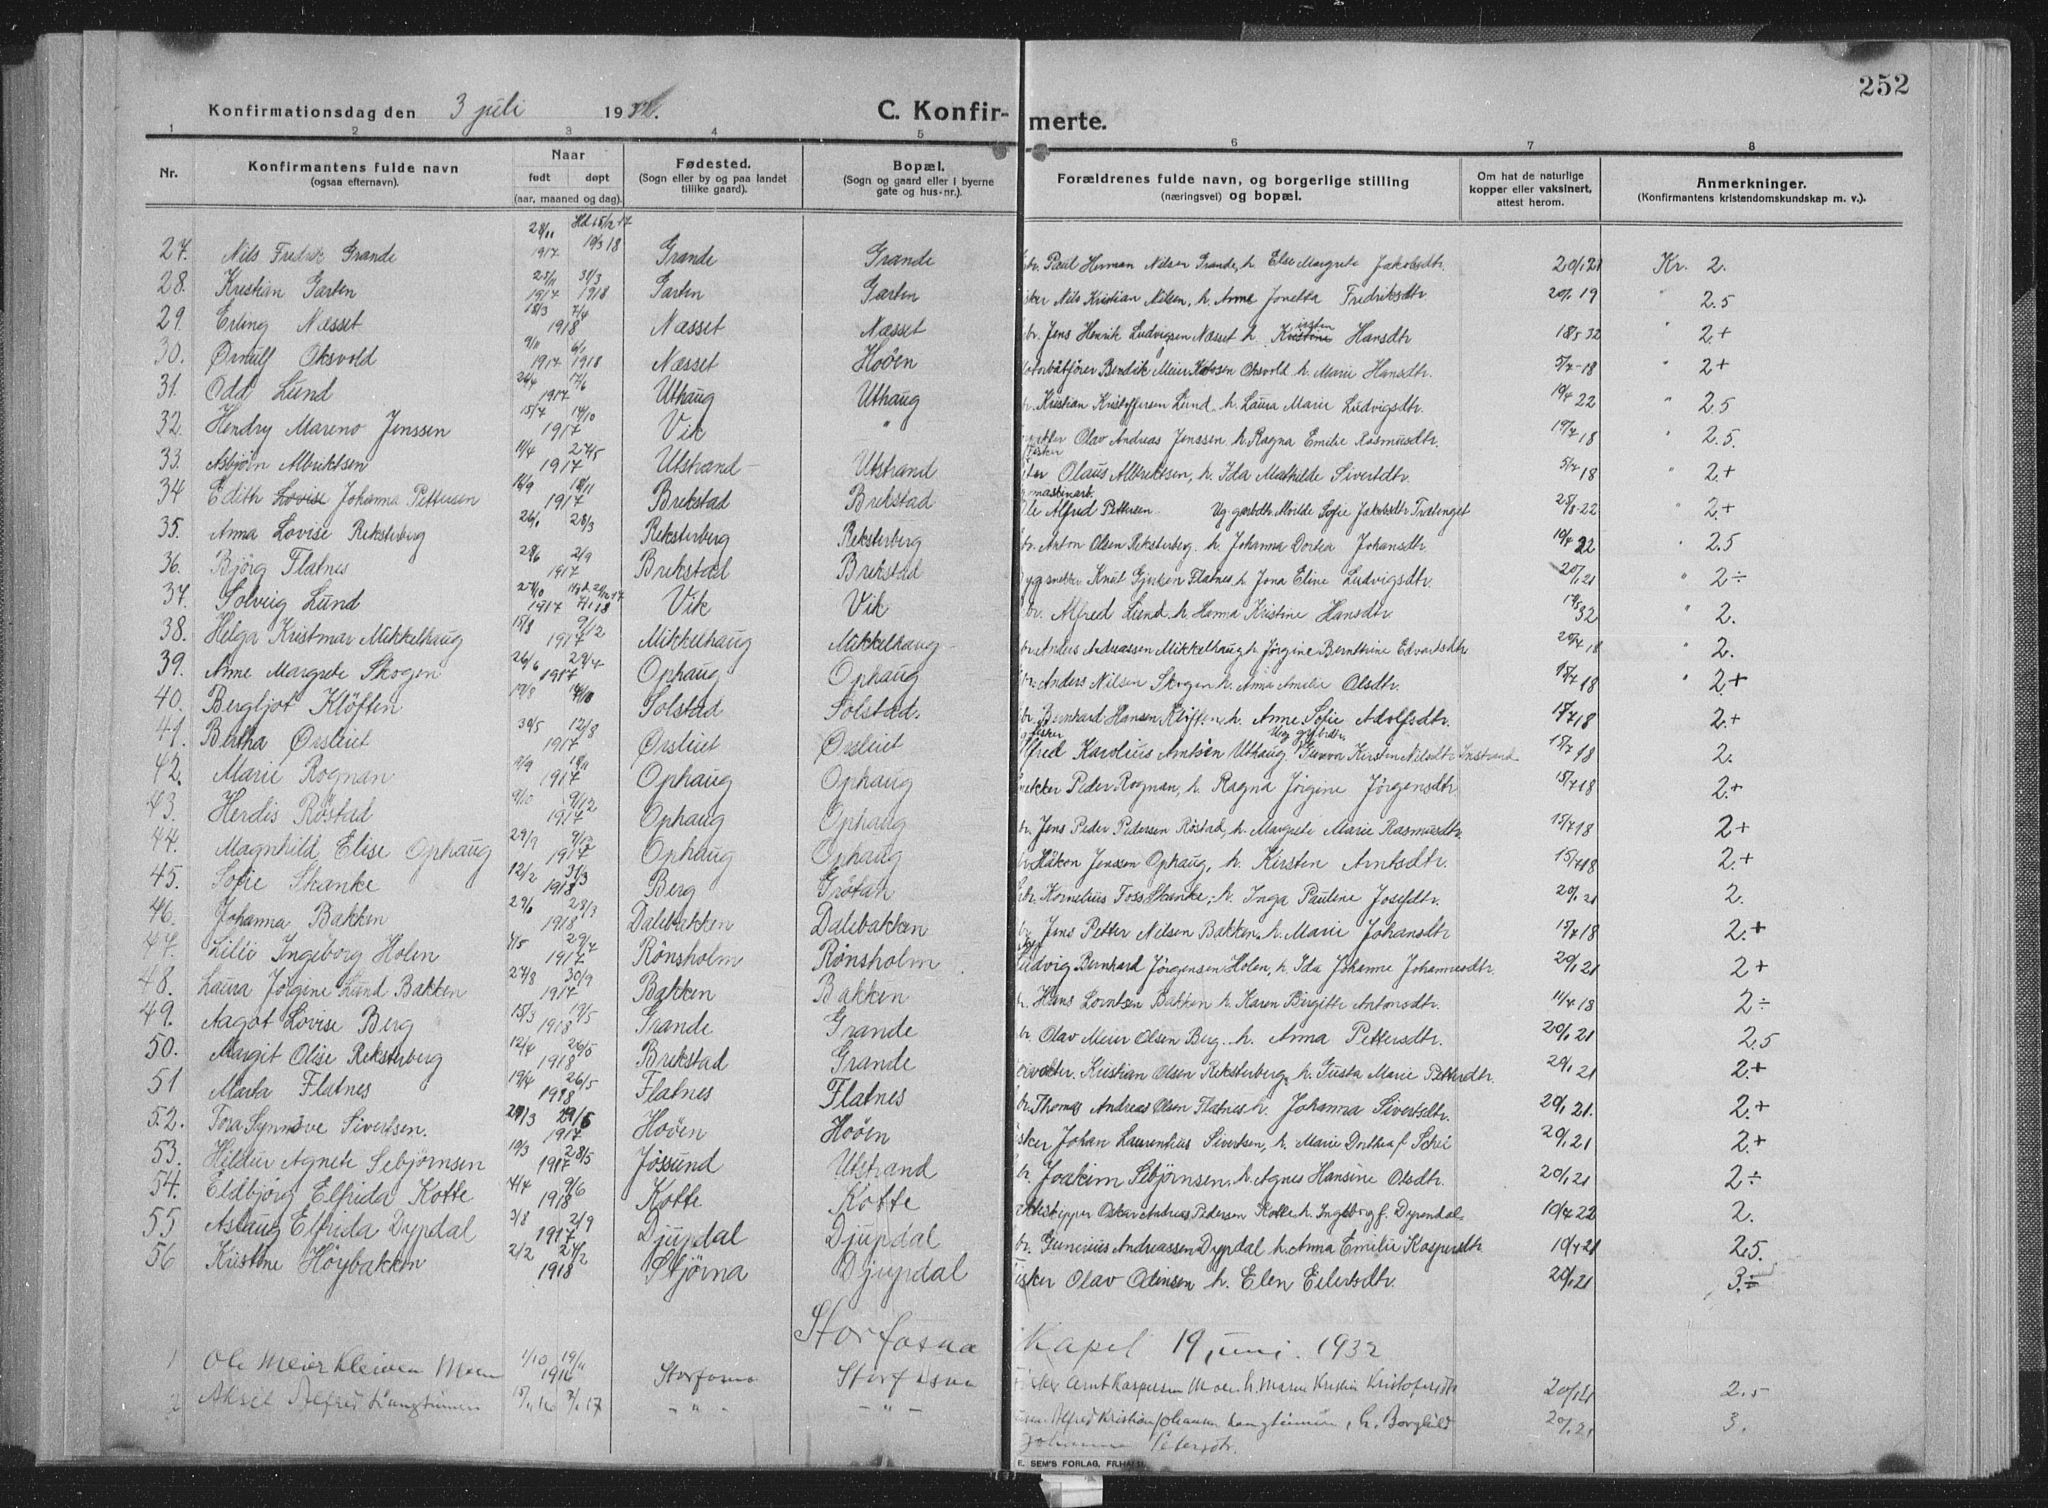 252
Konfirmationsdag den 3 juli 1932. C. Konfir- merte.
1 2 3 4 5 6 7 8
Nr. Konfirmantens fulde navn (ogsaa efternavn). Naar født døpt (aar, maaned og dag). Fødested. (Sogn eller by og paa landet tillike gaard). Bopæl. (Sogn og gaard eller i byerne gate og hus-nr.). Forældrenes fulde navn, og borgerlige stilling (næringsvei) og bopæl. Om hat de naturlige kopper eller vaksinert, attest herom. Anmerkninger. (Konfirmantens kristendomskundskap m. v.).
27. Nils Fredrik Grande 28/11 1917 Hd 15/12 17 10/3 18 Grande Grande br. Paul Herman Nilsen Grande, h. Else Margrete Jakobsdtr. 20/1 21 Kr. 2.
28. Kristian Garten 1917 31/3 1918 Garten Garten Nils Kristian Nilsen, h. Anne Jonetta Fredriksdtr. 20/1 19 " 2.5
29. Erling Næsset 18/3 7/4 1918 Næsset Næsset br. Jens Henrik Ludvigsen Næsset h. Kristine Hansdtr 18/5 32 " 2+
30. Ørnulf Oksvold 9/11 1917 6/1 1918 Næsset Hoøen Bendik Meier Oksvold h. Marie Hansdtr. 5/7-18 " 2+
31. Odd Lund 26/4 17/6 1917 Uthaug Uthaug Kristian Kristoffersen Lund h. Laura Marie Ludvigsdtr. 19/4 22 " 2.5
32. Hendry Mareno Jenssen 15/7 14/10 1917 Vik " Olav Andreas Jenssen h. Ragna Emilie Rasmusdtr. 18 " 2.5.
33. Asbjørn Albriktsen 11/4 27/5 1917 Utstrand Utstrand Olaus Albrektsen, h. Ida Mathilde Sivertsdtr. 5/7 18 " 2.+
34 Edith Lovise Johanna Pettersen 16/9 18/11 1917 Brekstad Brekstad Alfred Pettersen Sofie Jakobsdtr 22 " 2.+
35. Anna Lovise Reksterberg 26/1 28/3 Reksterberg Reksterberg br. Anton Olsen Reksterberg h. Johanna Dortea Johansdtr. 22 " 2.5
36. Bjørg Flatnes 28/6 2/9 1917 Brekstad Brekstad Knut Flatnes h Jona Eline Ludvigsdtr. 20/1 21 " 2÷
37. Solveig Lund 1917 18 Vik Vik br. Alfred Lund h. Hanna Kristine Hansdtr. 32 " 2.
38. Helga Kristmar Mikkelhaug 15/8 9/12 1917 Mikkelhaug Mikkelhaug br. Anders Andreassen Mikkelhaug h Jørgine Berntine Edvardsdtr 18 2.
39. Anne Margrete Skogen 26/6 29/7 1917 Ophaug Ophaug br. Anders Nilsen Skogen h. Anna Amalie Olsdtr. 15/7 18 " 2+
40. Bergljot Kløften 19/8 14/10 Solstad Solstad. br. Bernhard Hansen Kløften h. Anne Sofie Adolfsdtr. 18 2.+
41. Bertha Ørsleiet 30/5 12/8 1917 Ørsleiet Ørsleiet Karolius Arntsen Uthaug Kirsten Nilsdtr 15/7 18 2.
42. Marie Rognan 17/9 18/11 1917 Ophaug Ophaug Peder Rognan, h. Ragna Jørgine Jørgensdtr 15/7 18 2.+
43. Herdis Røstad 9/10 9/12 1917 Ophaug Ophaug br. Jens Peder Pedersen Røstad, h. Margrete Marie Rasmusdtr. 15/7 18 2+
44. Magnhild Elise Ophaug 29/9 9/12 1917 Ophaug Ophaug Håkon Jenssen Ophaug, h. Kirsten Arntsdtr. 15/7 18 2.+
45. Sofie Skanke 12/2 31/3 1918 Berg Grøtan br. Kornelius Foss Skanke, h. Inga Pauline Josefdtr. 20/1 21 2.
46. Johanna Bakken 28/3 1918 Dalebakken Dalebakken Jens Petter Nilsen Bakken, h. Marie Johansdtr 15/7 18 2.+
47. Lilli Ingeborg Holen 4/5 29/7 1917 Rønsholm Rønsholm Ludvig Bernhard Jørgensen Holen, h. Ida Johanne Johannesdtr. 20/1 21 2+
48. Laura Jørgine Lund Bakken 27/8 30/9 1917 Bakken Bakken Hans Lorntsen Bakken h. Karen Birgitte Antonsdtr. 11/4 18 2÷
49. Aagot Lovise Berg 15/3 19/5 1918 Grande Grande br. Olav Meier Olsen Berg. h. Anna Pettersdtr. 20/1 21 2.5
50. Margit Olise Reksterberg 12/4 26/5 1918 Brekstad Grande Kristian Olsen Reksterberg, h. Gusta Marie Pettersdtr. 20/1 21 2.+
51 Marta Flatnes 19/4 26/5 1918 Flatnes Flatnes br. Thomas Andreas Olsen Flatnes h. Johanna Sivertsdtr. 20/1 21. 2.+
52. Tora Synnøve Sivertsen. 1917 Hoøen Hoøen Johan Laurentius Sivertsen, h. Marie Dorthea f. 20/1 21 2.+
53. Hildur Agnete Sebjørnsen 19/3 28/5 1917 Jøssund Utstrand br. Joakim Sebjørnsen, h. Agnes Hansine Olsdtr. 20/1 21 2÷
54. Eldbjørg Elfrida Kotte 9/6 1918 Kotte Kotte Oskar Andreas Pedersen Kotte h. Ingeborg f. Dyrendal 10/4 22 2.
55 Aslaug Elfrida Dypdal 3/8 2/9 1917 Djupdal Djupdal br. Gunerius Andreassen Dypdal h. Anna Emilie Kaspersdtr 10/4 21 2.5.
56 Kristine Høybakken 2/2 1918 Stjørna Djupdal Olav Odinsen h. Elen Eilertsdtr. 20/1 21 3.÷
Storfosna Kapel 19 juni 1932
1 Ole Meier Kleiven Moen 1/10 19/11 1916 Storfosna Storfosna Arnt Kaspersen Moen h. Maren Kristin Kristofersdtr 20/1 21 2.5
2 Aksel Alfred Langtinnen 16 17 - " - - " - Alfred Kristian Johansen Langtinnen, h. Borghild 20/1 21 3.
Johanna Petersdtr.
E. SEM'S FORLAG, FR.HALD